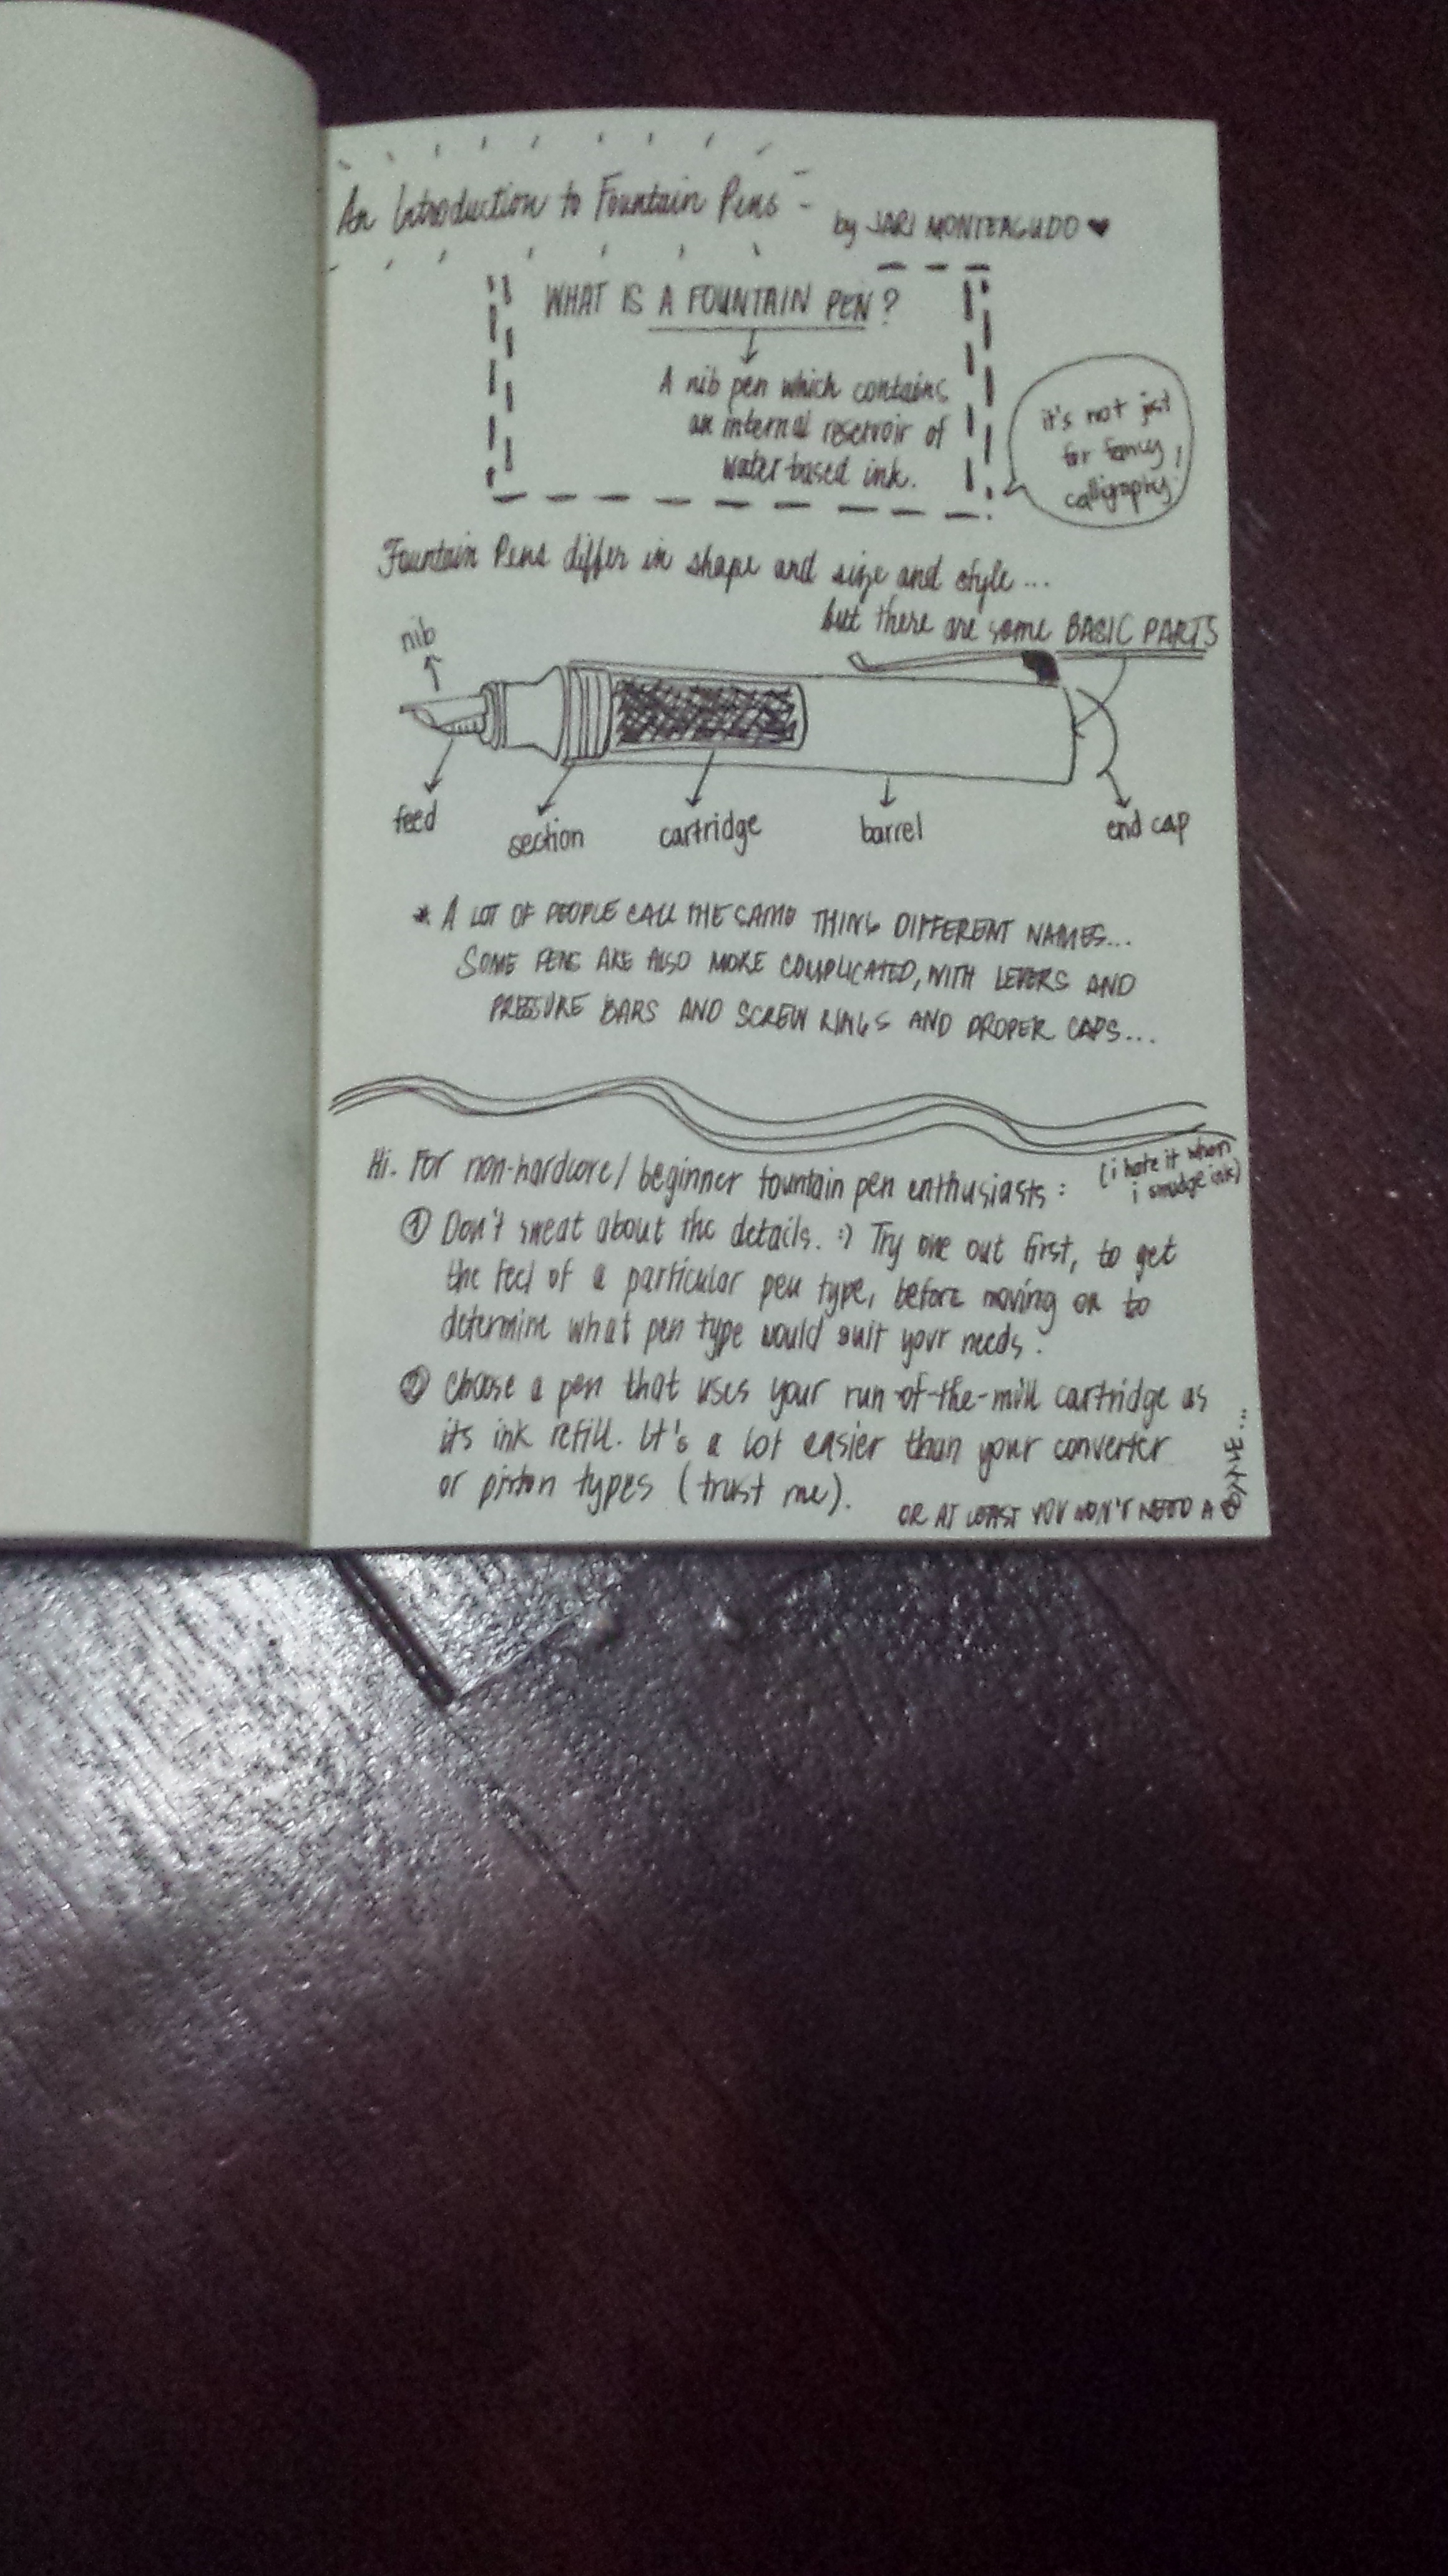 An Introduction to Fountain Pens -
by JARI MONTEAGUDO ♥
WHAT IS A FOUNTAIN PEN?
A nib pen which contains
an internal reservoir of
water-based ink.
it's not just
for fancy
calligraphy.
Fountain Pens differ in shape and size and style...
but there are some BASIC PARTS
nib
feed
section
cartridge
barrel
end cap
* A LOT OF PEOPLE CALL THE SAME THING DIFFERENT NAMES...
SOME PENS ARE ALSO MORE COMPLICATED, WITH LEVERS AND
PRESSURE BARS AND SCREW RINGS AND PROPER CAPS...
Hi. For non-hardcore/beginner fountain pen enthusiasts:
(i hate it when
i smudge ink)
① Don't sweat about the details. :) Try one out first, to get
the feel of a particular pen type, before moving on to
determine what pen type would suit your needs.
② Choose a pen that uses your run-of-the-mill cartridge as
its ink refill. It's a lot easier than your converter
or piston types (trust me).
OR AT LEAST YOU WON'T NEED A